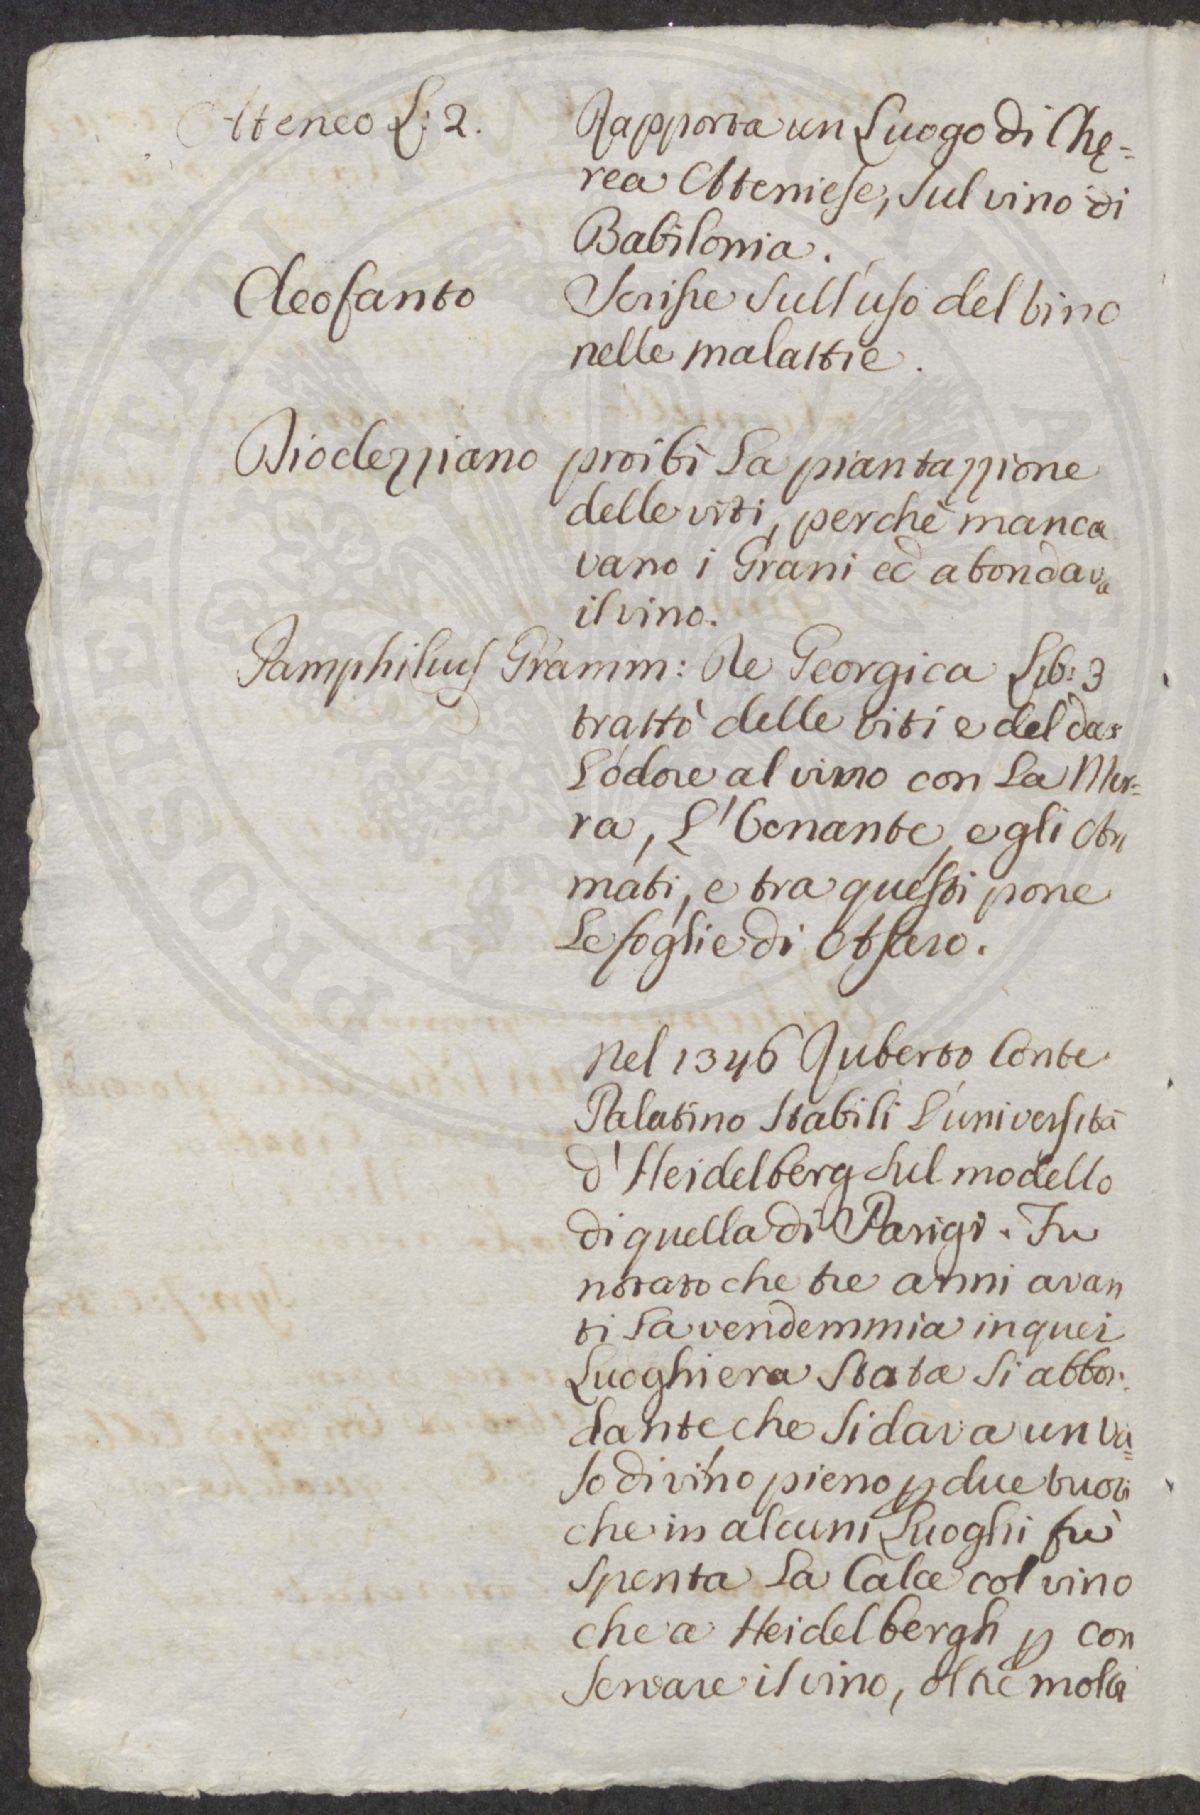 Ateneo L: 2. Rapporta un Luogo di Che=
rea Ateniese, sul vino di
Babilonia.
Cleofanto Scrisse sull'uso del vino
nelle malattie.
Dioclezziano proibì la piantazzione
delle viti, perchè manca
vano i Grani ed abondava
il vino.
Pamphilus Gramm: Re Georgica Lib: 3
trattò delle viti e del dar
L'odore al vino con la Mir=
ra, L'Oenante, e gli Aro
mati, e tra questi pone
Le foglie di Asaro.
Nel 1346 Ruberto Conte
Palatino stabilì L'università
d'Heidelberg sul modello
di quella di Parigi. Fu
notato che tre anni avan
ti la vendemmia in quei
Luoghi era stata si abbon
dante, che si dava un va=
so di vino pieno p due buoti
che in alcuni Luoghi fù
spenta la Calce col vino
che a Heidelbergh p con
servare il vino, oltre molti
PROSPERITATI PUBLICAE AU